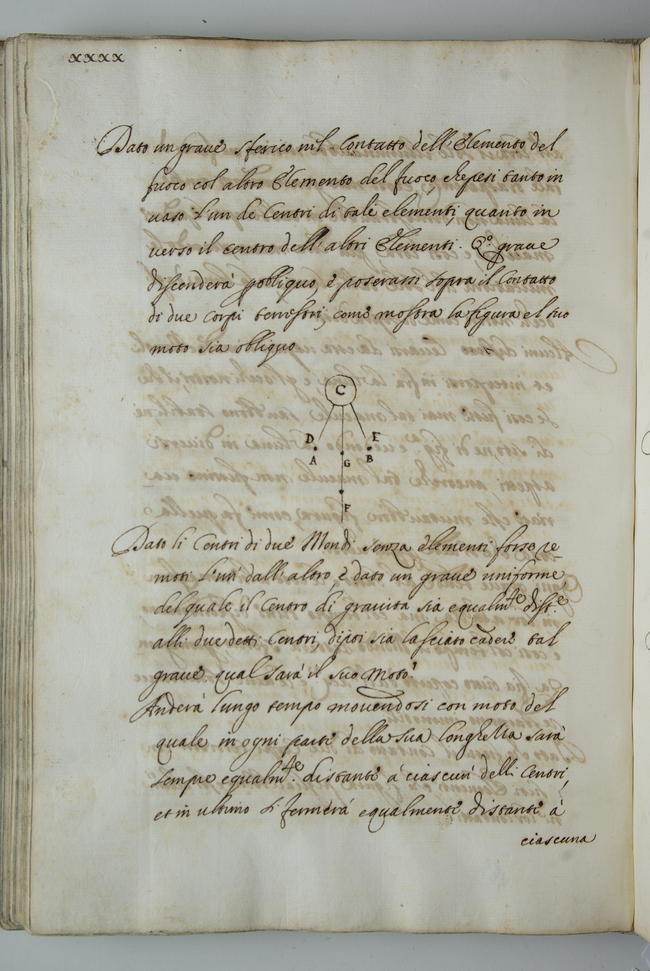 xxxx
Dato un grave sferico nel Contatto dell'Elemento del
fuoco col altro Elemento del fuoco, e pesi tanto in
verso l'un de Centri di tale elementi, quanto in
verso il centro dell'altri Elementi. Qo. grave
discenderà obliquo, e poserassi sopra il Contatto
di due Corpi terrestri, come mostra la figura el suo
moto sia obliquo
C
D E
A G B
F
Dato li Centri di due Mondi senza elementi forse re
moti l'un dall'altro, e dato un grave uniforme
del quale il Centro di gravita sia equalmte dist.e
alli due detti Centri, dipoi sia lasciato cadere tal
grave. qual sarà il suo Moto?
Anderà lungo tempo movendosi con moto del
quale in ogni parte della sua longhezza sarà
sempre equalmte. distante à ciascun delli Centri,
et in ultimo si fermerà equalmente distante à
ciascuna